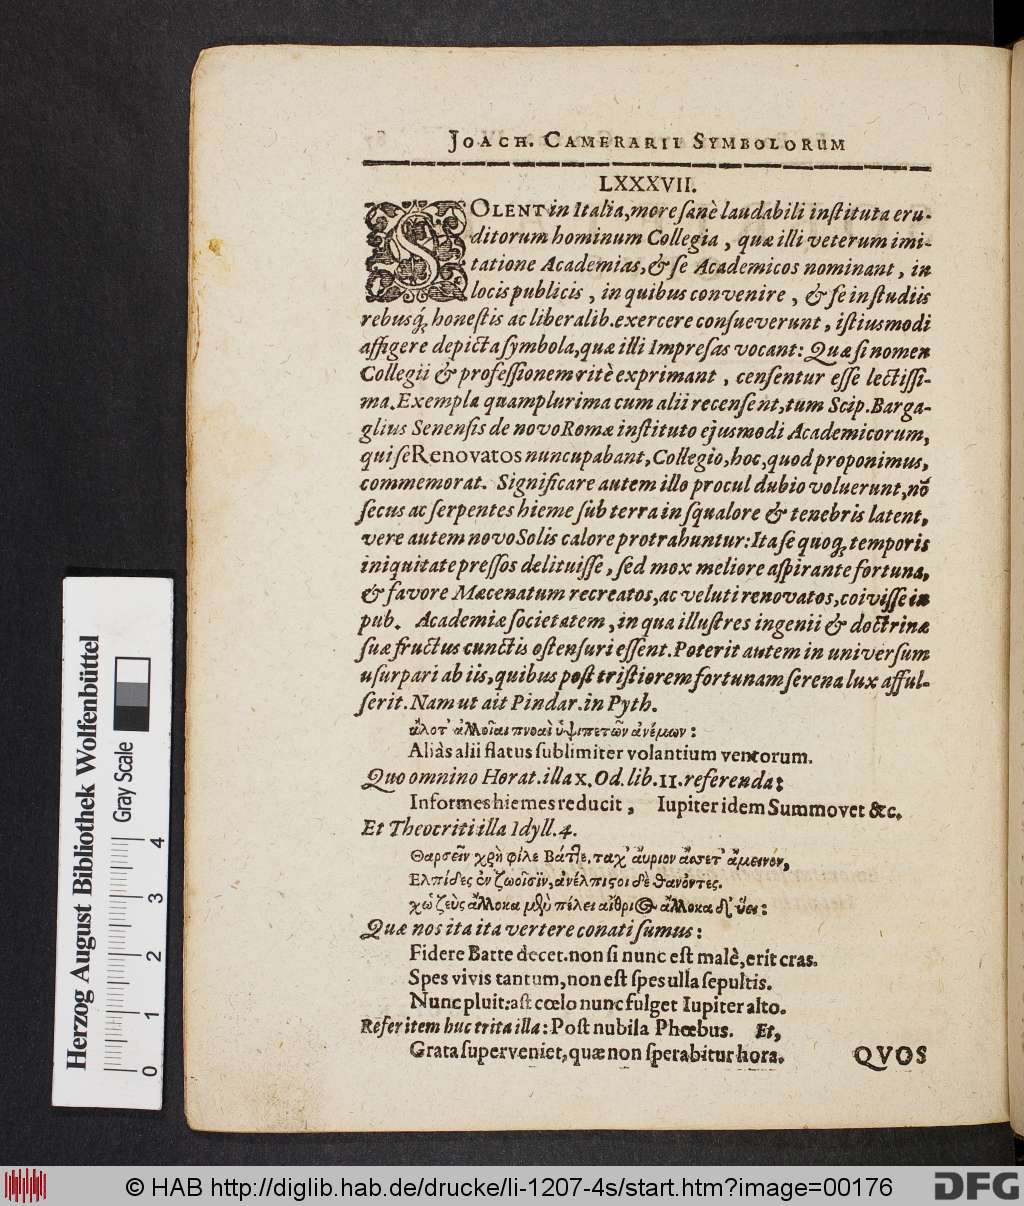 JOACH. CAMERARII SYMBOLORUM
LXXXVII.
SOLENT in Italia, more sanè laudabili instituta eru-
ditorum hominum Collegia, quæ illi veterum imi-
tatione Academias, & se Academicos nominant, in
locis publicis, in quibus convenire, & se in studiis
rebusq́; honestis ac liberalib. exercere consueverunt, istiusmodi
affigere depicta symbola, quæ illi Impresas vocant: Quæ si nomen
Collegii & professionem ritè exprimant, censentur esse lectissi-
ma. Exempla quamplurima cum alii recensent, tum Scip. Barga-
glius Senensis de novo Romæ instituto ejusmodi Academicorum,
qui se Renovatos nuncupabant, Collegio, hoc, quod proponimus,
commemorat. Significare autem illo procul dubio voluerunt, nõ
secus ac serpentes hieme sub terra in squalore & tenebris latent,
vere autem novo Solis calore protrahuntur: Ita se quoq; temporis
iniquitate pressos delituisse, sed mox meliore aspirante fortuna,
& favore Mæcenatum recreatos, ac veluti renovatos, coivisse in
pub. Academiæ societatem, in qua illustres ingenii & doctrinæ
suæ fructus cunctis ostensuri essent. Poterit autem in universum
usurpari ab iis, quibus post tristiorem fortunam serena lux afful-
serit. Nam ut ait Pindar. in Pyth.
ἄλοτ' ἀλλοῖαι πνοαὶ ὑψιπετῶν ἀνέμων:
Aliàs alii flatus sublimiter volantium ventorum.
Quo omnino Horat. illa x. Od. lib. II. referenda:
Informes hiemes reducit, Iupiter idem Summovet &c.
Et Theocriti illa Idyll. 4.
Θαρσεῖν χρὴ φίλε Βάττε, ταχ' ἄυριον ἄσετ' ἄμεινον,
Ελπίδες ἐν ζωοῖσιν, ἀνέλπιστοι δὲ θανόντες.
χὠ ζεὺς ἄλλοκα μὲν πέλει αἴθριος ἄλλοκα δ' ὕει:
Quæ nos ita ita vertere conati sumus:
Fidere Batte decet. non si nunc est malè, erit cras.
Spes vivis tantum, non est spes ulla sepultis.
Nunc pluit: ast cœlo nunc fulget Iupiter alto.
Refer item huc trita illa: Post nubila Phœbus. Et,
Grata superveniet, quæ non sperabitur hora.
QVOS
Herzog August Bibliothek Wolfenbüttel
Gray Scale
0 1 2 3 4
© HAB http://diglib.hab.de/drucke/li-1207-4s/start.htm?image=00176
DFG